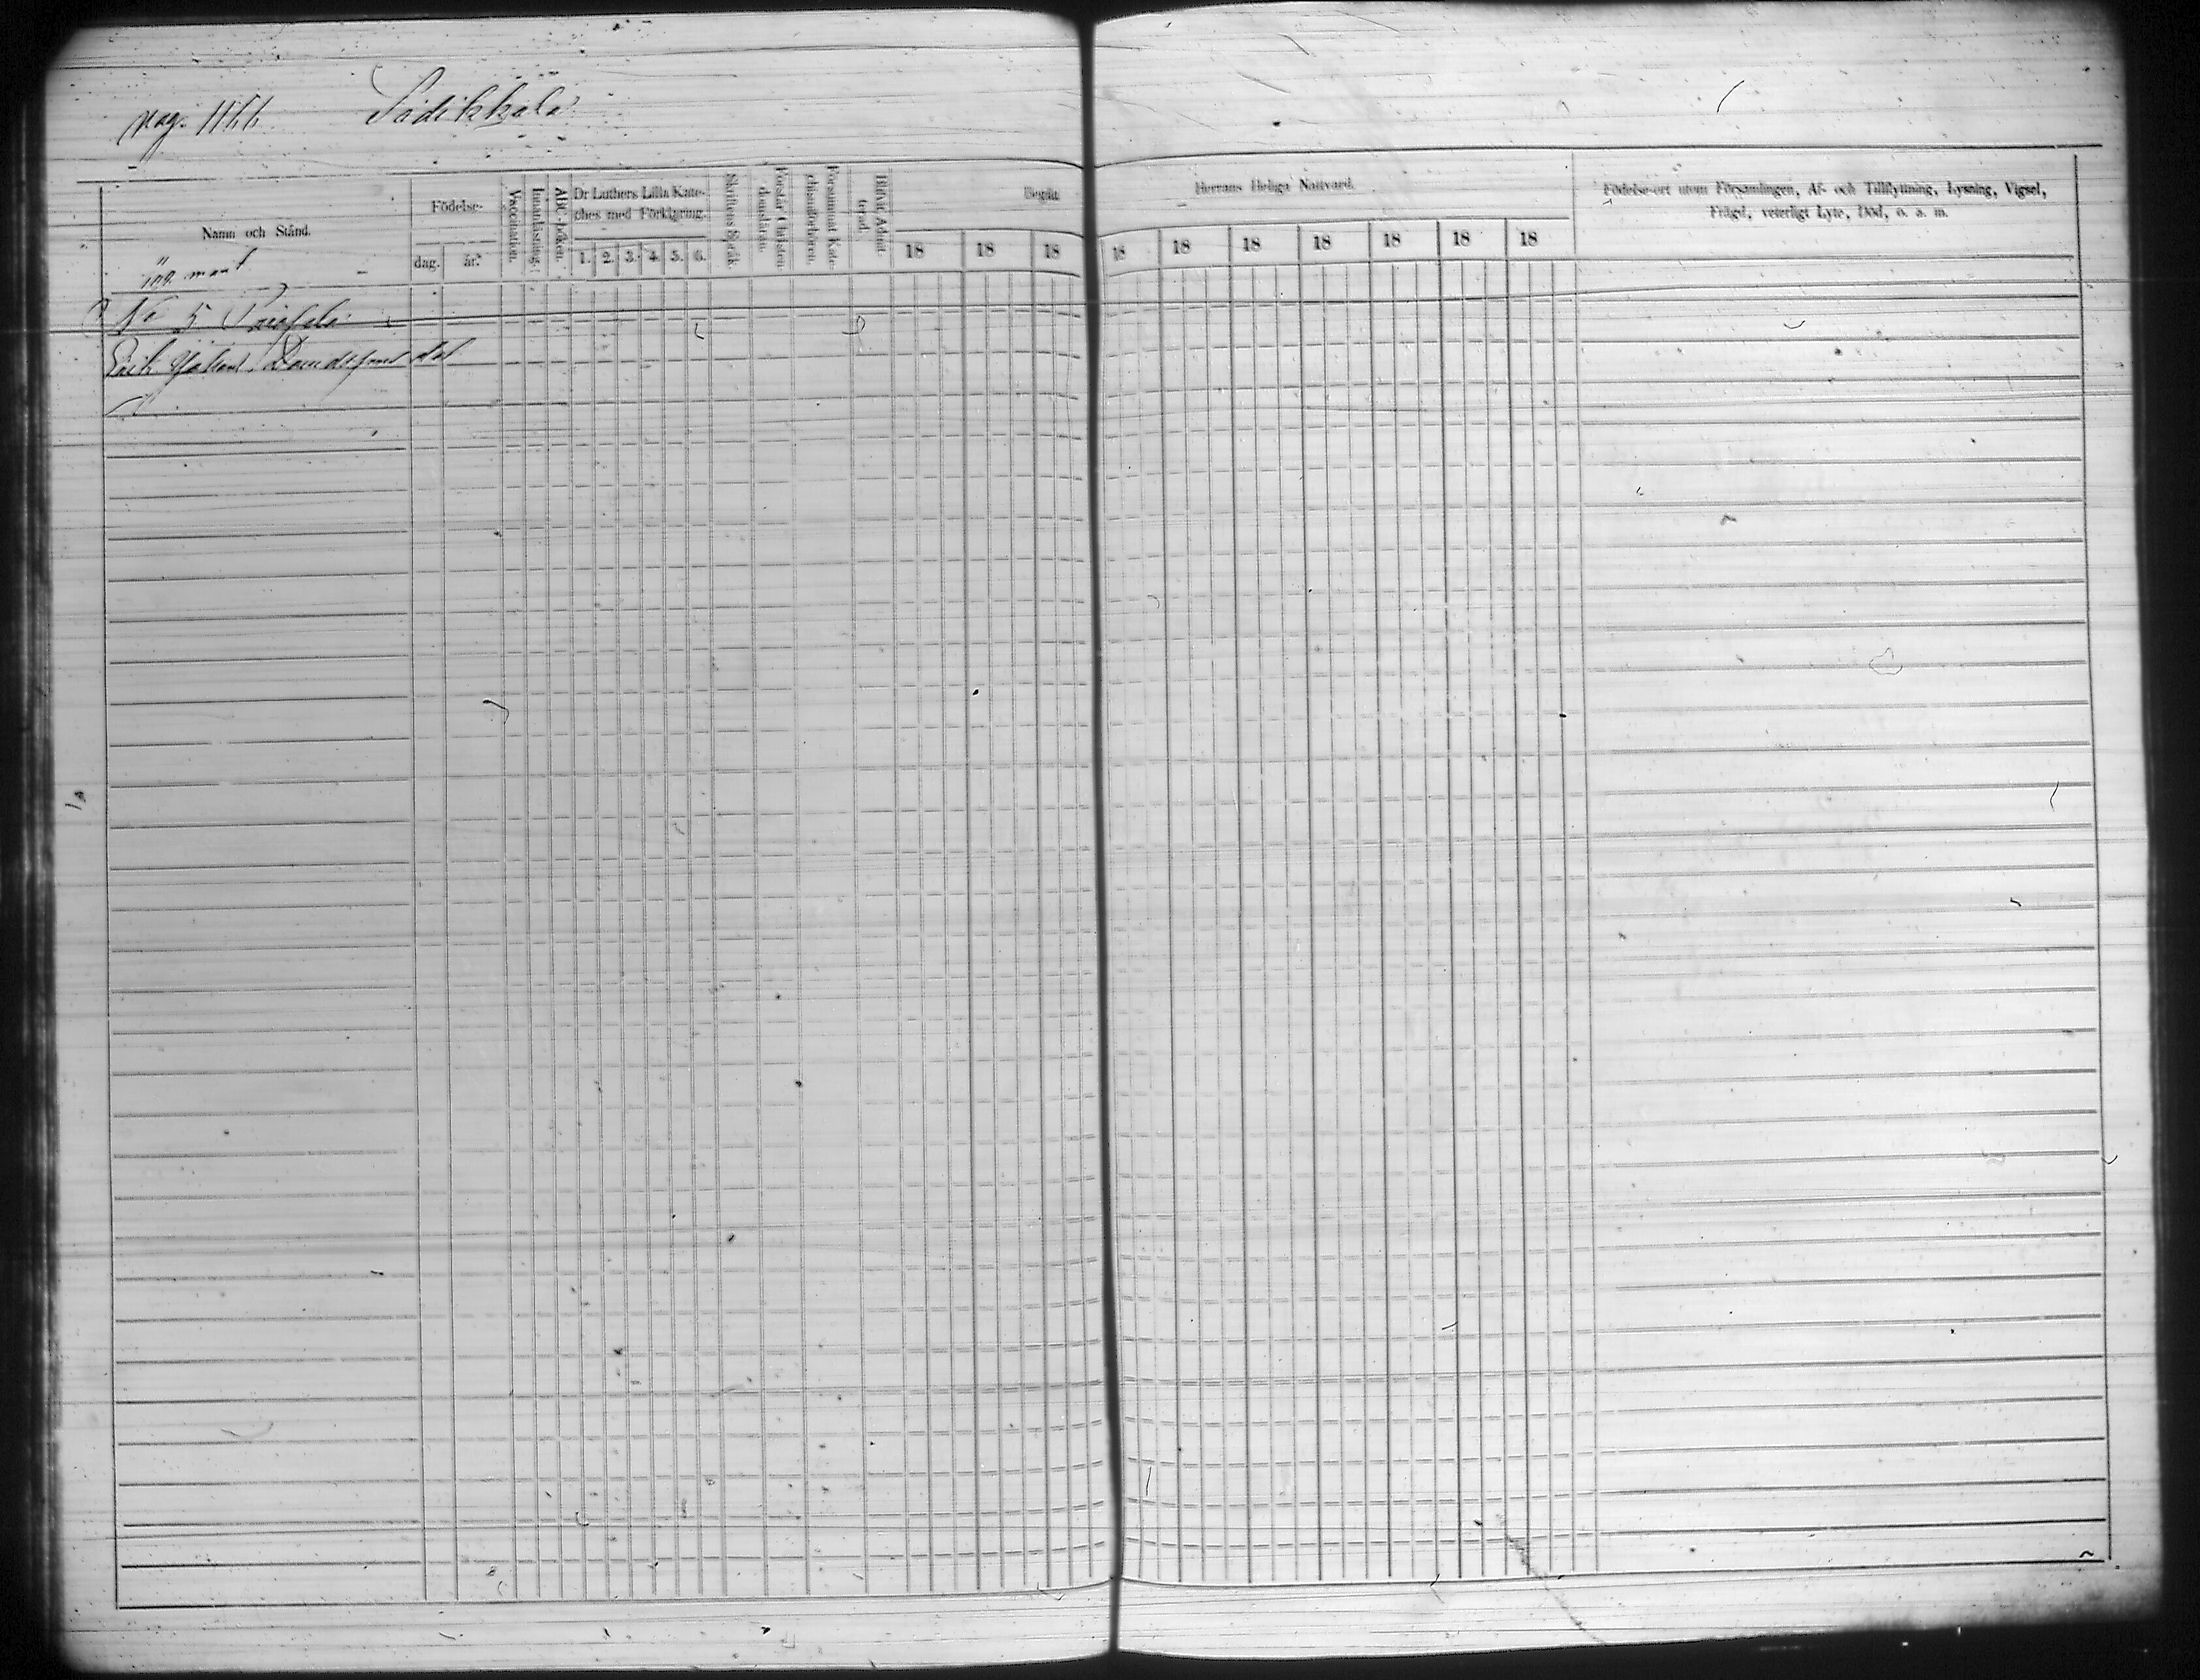 pag. 1166 Sadikkala
Namn och Stånd.
Födelse-
dag.
år.
Vaccination.
Innanläsning.
ABC-boken.
Dr Luthers Lilla Kate-
ches med Förklaring.
1. 2. 3. 4. 5. 6.
Skriftens Språk.
Förstår Christen-
domsläran.
Försummat Kate-
chismiförhören.
Blifvit Admit-
terad.
Begått
Herrans Heliga Nattvard.
18 18 18 18 18 18 18 18 18 18
Födelse-ort utom Församlingen, Af- och Tillflyttning, Lysning, Vigsel,
Frägd, veterligt Lyte, Död, o. s. m.
No 5
Erik Johan Davidsson